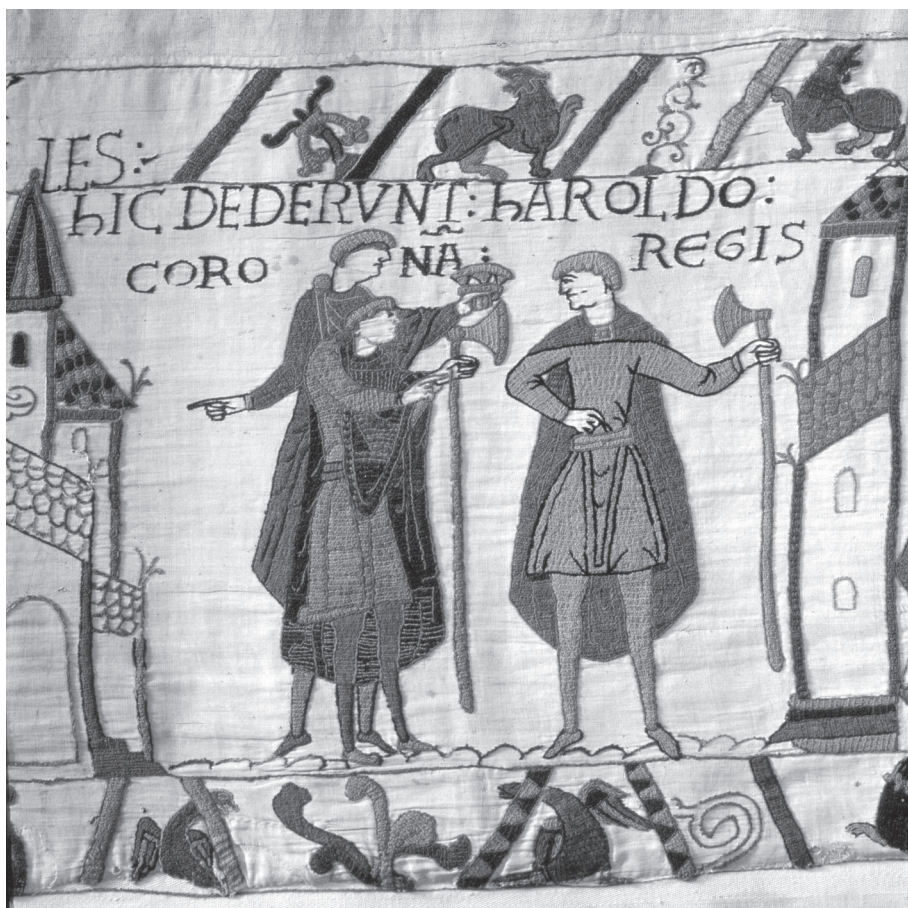 LES:-
hIC DEDERVNT: hAROLDO:
CORO NA̅: REGIS